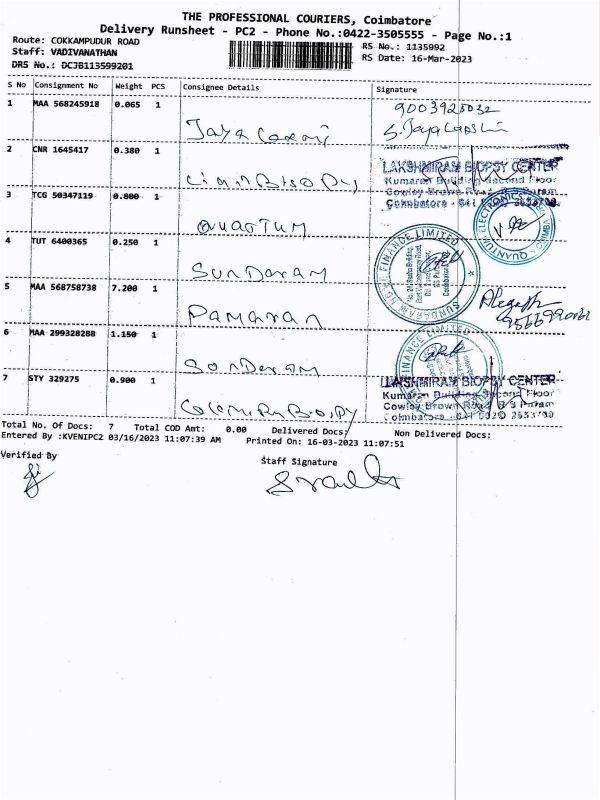 THE PROFESSIONAL COURIERS, Coimbatore
Delivery Runsheet - PC2 - Phone No.:0422-3505555 - Page No.:1
Route: COKKAMPUDUR ROAD
RS No.: 1135992
Staff: VADIVANATHAN
RS Date: 16-Mar-2023
DRS No.: DCJB113599201
S No Consignment No Weight PCS Consignee Details Signature
1 MAA 568245918 0.065 1
2 CNR 1645417 0.380 1
LAKSHMIRAM BIOPSY CENTER
Kumaran Building Second Floor
Cowley Brown Road R S Puram
3 TCG 50347119 0.800 1 QUANTUM
4 TUT 6400365 0.250 1 SUNDARAM
FINANCE LIMITED
5 MAA 568758738 7.200 1
6 MAA 299328288 1.150 1
FINANCE LIMITED
7 STY 329275 0.900 1
LAKSHMIRAM BIOPSY CENTER
Kumaran Building Second Floor
Cowley Brown Road R S Puram
Total No. Of Docs: 7 Total COD Amt: 0.00 Delivered Docs: Non Delivered Docs:
Entered By :KVENIPC2 03/16/2023 11:07:39 AM Printed On: 16-03-2023 11:07:51
Verified By
Staff Signature